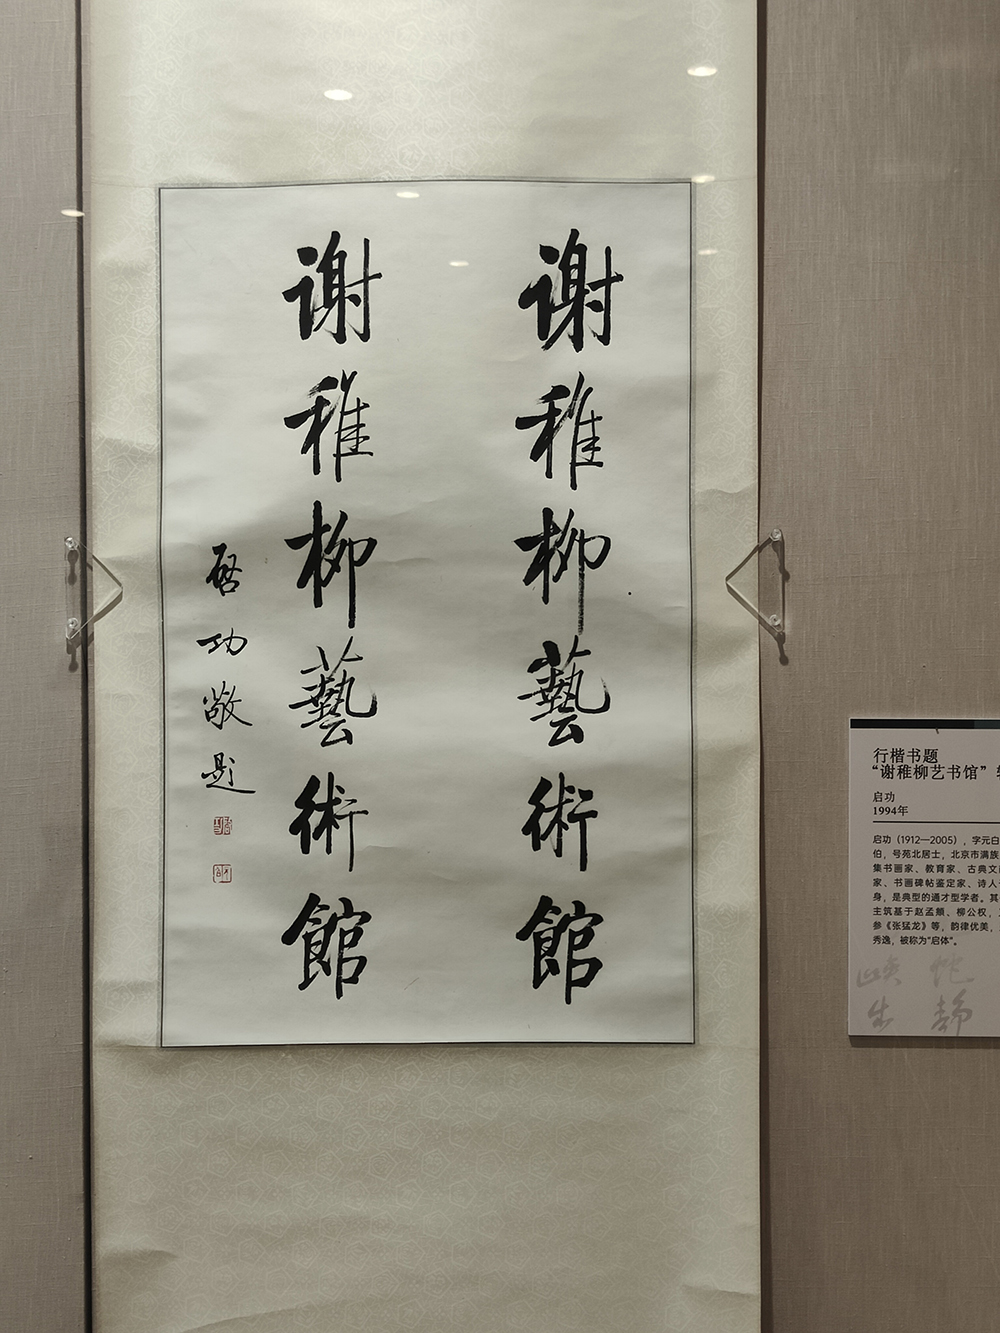 谢稚柳藝術館
谢稚柳藝術館
啓功敬题
行楷书题
“谢稚柳艺书馆”
启功
1994年
启功（1912—2005），字元白
伯，号苑北居士，北京市满族
集书画家、教育家、古典文
家、书画碑帖鉴定家、诗人
身，是典型的通才型学者。其
主筑基于赵孟頫、柳公权，
参《张猛龙》等，韵律优美，
秀逸，被称为“启体”。